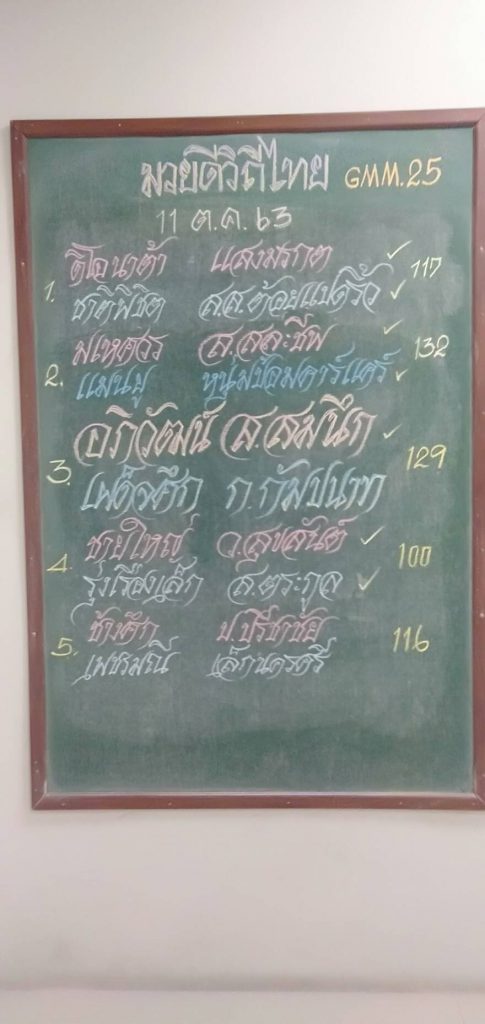 มวยดีวิถีไทย GMM.25
11 ต.ค. 63
1. ดีโอนาต้า แสงมรกต ✓ 117
ชาติพิชิต ส.ส.ต้อยแปดริ้ว ✓
2. มเหศวร ส.สละชีพ ✓ 132
แมนยู หนุ่มป้อมคาร์แคร์ ✓
3. อภิวัฒน์ ส.สมนึก ✓ 129
เผด็จศึก ก.กัมปนาท
4. ชายใหญ่ ว.สุขสันต์ ✓ 100
รุ่งเรืองเล็ก ส.ตระกูล ✓
5. ช้างศึก ป.ปรีชาชัย 116
เพชรมณี เล็กนครศรี